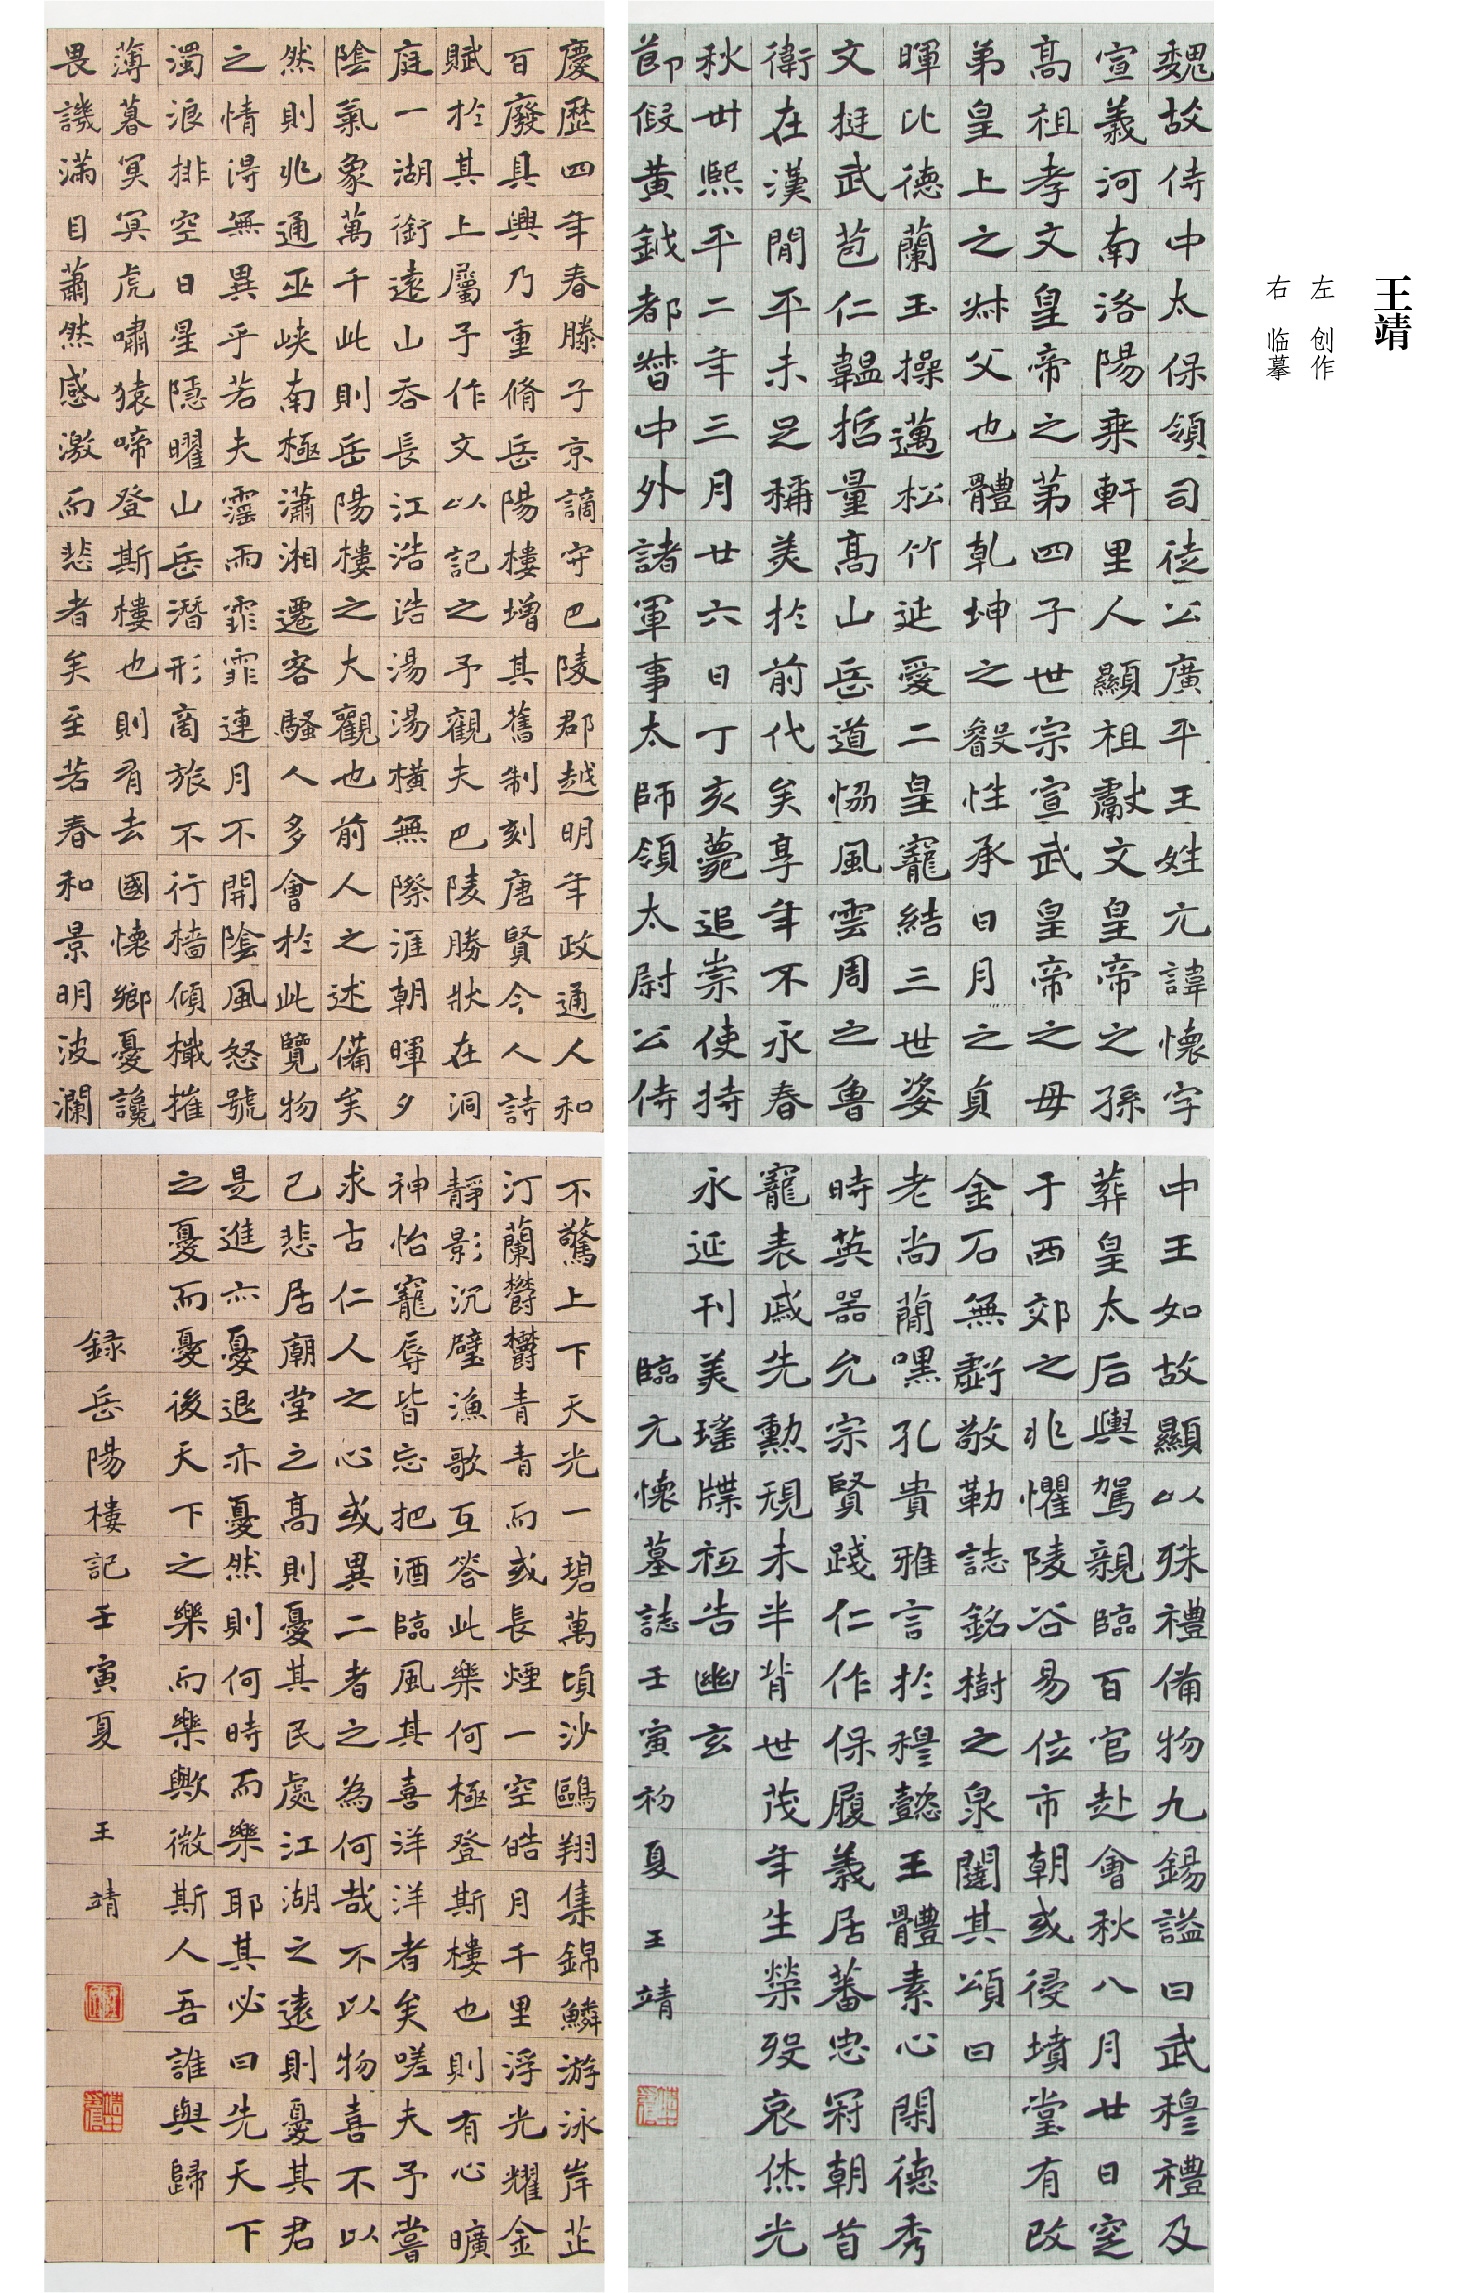 王靖
左 创作
右 临摹
魏故侍中太保領司徒公廣平王姓元諱懷字
宣義河南洛陽乘軒里人顯祖獻文皇帝之孫
高祖孝文皇帝之第四子世宗宣武皇帝之母
弟皇上之叔父也體乾坤之叡性承日月之貞
暉比德蘭玉操邁松竹延愛二皇寵結三世姿
文挺武苞仁韞哲量高山岳道協風雲周之魯
衛在漢間平未足稱美於前代矣享年不永春
秋卅熙平二年三月廿六日丁亥薨追崇使持
節假黃鉞都督中外諸軍事太師領太尉公侍
中王如故顯以殊禮備物九錫謚曰武穆禮及
葬皇太后輿駕親臨百官赴會秋八月廿日窆
于西郊之兆懼陵谷易位市朝或侵墳堂有改
金石無虧敬勒誌銘樹之泉闥其頌曰
老尚簡嘿孔貴雅言於穆懿王體素心閑德秀
時英器允宗賢踐仁作保履義居蕃忠冠朝首
寵表戚先勳規未半背世茂年生榮歿哀休光
永延刊美瑤牒祗告幽玄
臨元懷墓誌壬寅初夏 王靖
慶歷四年春滕子京謫守巴陵郡越明年政通人和
百廢具興乃重脩岳陽樓增其舊制刻唐賢今人詩
賦於其上屬予作文以記之予觀夫巴陵勝狀在洞
庭一湖銜遠山吞長江浩浩湯湯橫無際涯朝暉夕
陰氣象萬千此則岳陽樓之大觀也前人之述備矣
然則北通巫峽南極瀟湘遷客騷人多會於此覽物
之情得無異乎若夫霪雨霏霏連月不開陰風怒號
濁浪排空日星隱曜山岳潛形商旅不行檣傾檝摧
薄暮冥冥虎嘯猿啼登斯樓也則有去國懷鄉憂讒
畏譏滿目蕭然感激而悲者矣至若春和景明波瀾
不驚上下天光一碧萬頃沙鷗翔集錦鱗游泳岸芷
汀蘭鬱鬱青青而或長煙一空皓月千里浮光耀金
靜影沉璧漁歌互答此樂何極登斯樓也則有心曠
神怡寵辱皆忘把酒臨風其喜洋洋者矣嗟夫予嘗
求古仁人之心或異二者之為何哉不以物喜不以
己悲居廟堂之高則憂其民處江湖之遠則憂其君
是進亦憂退亦憂然則何時而樂耶其必曰先天下
之憂而憂後天下之樂而樂歟微斯人吾誰與歸
錄岳陽樓記壬寅夏 王靖